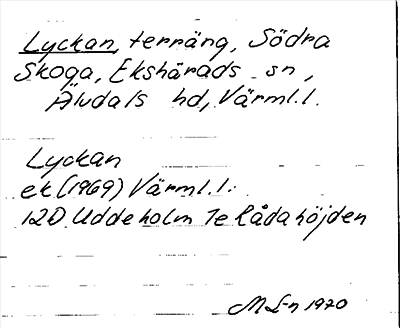 Lyckan, terräng, Södra
Skoga, Ekshärads sn,
Älvdals hd, Värml.l.
Lyckan
ek (1969) Värml.l.
12D Uddeholm 7e Rådahöjden
M L-n 1970